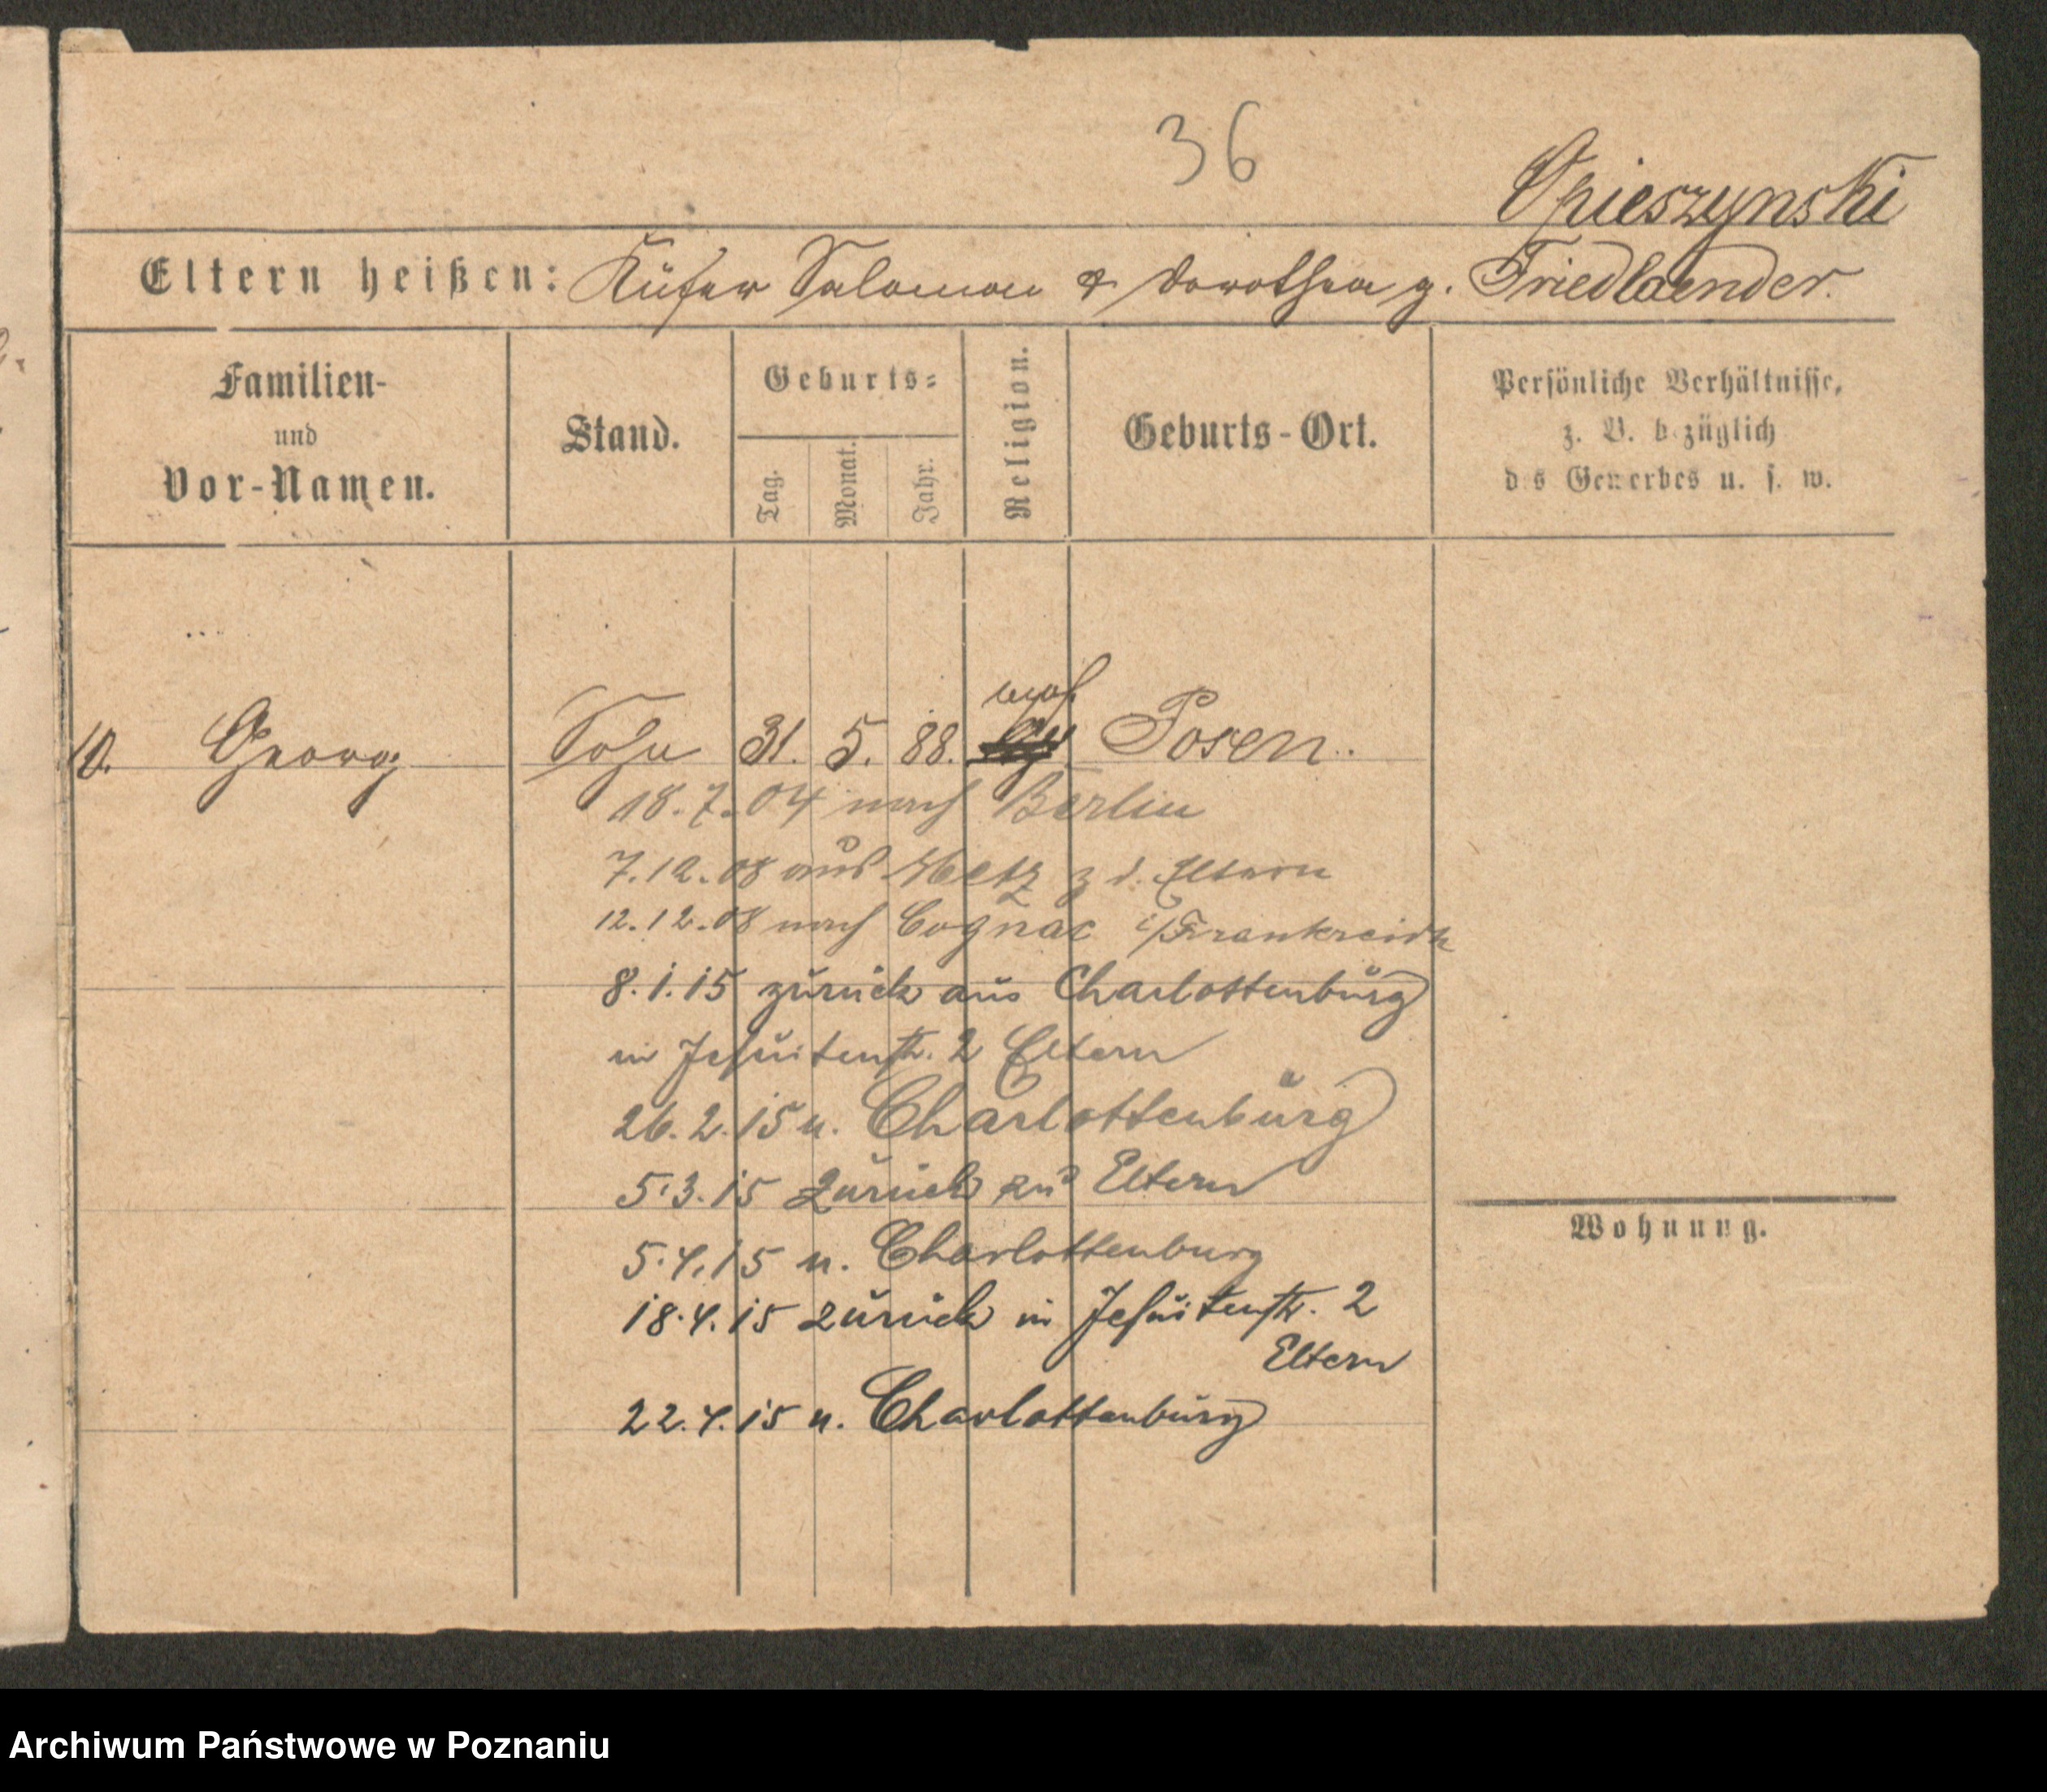 36
Opieszynski
Eltern heißen: Küfer Salomon & Dorothea g. Friedlaender.
Familien-
und
Vor-Namen.
Stand.
Geburts-
Tag.
Monat.
Jahr.
Religion.
Geburts-Ort.
Persönliche Verhältnisse,
z. B. bezüglich
des Gewerbes u. s. w.
mos.
10. Georg Sohn 31. 5. 88. Posen.
18.7.04 nach Berlin
7.12.08 aus Metz z d. Eltern
12.12.08 nach Cognac i/Frankreich
8.1.15 zurück aus Charlottenburg
in Jesuitenstr. 2 Eltern
26.2.15 n. Charlottenburg
5.3.15 zurück zu Eltern
Wohnung.
5.4.15 n. Charlottenburg
18.4.15 zurück in Jesuitenstr. 2
Eltern
22.4.15 n. Charlottenburg
Archiwum Państwowe w Poznaniu